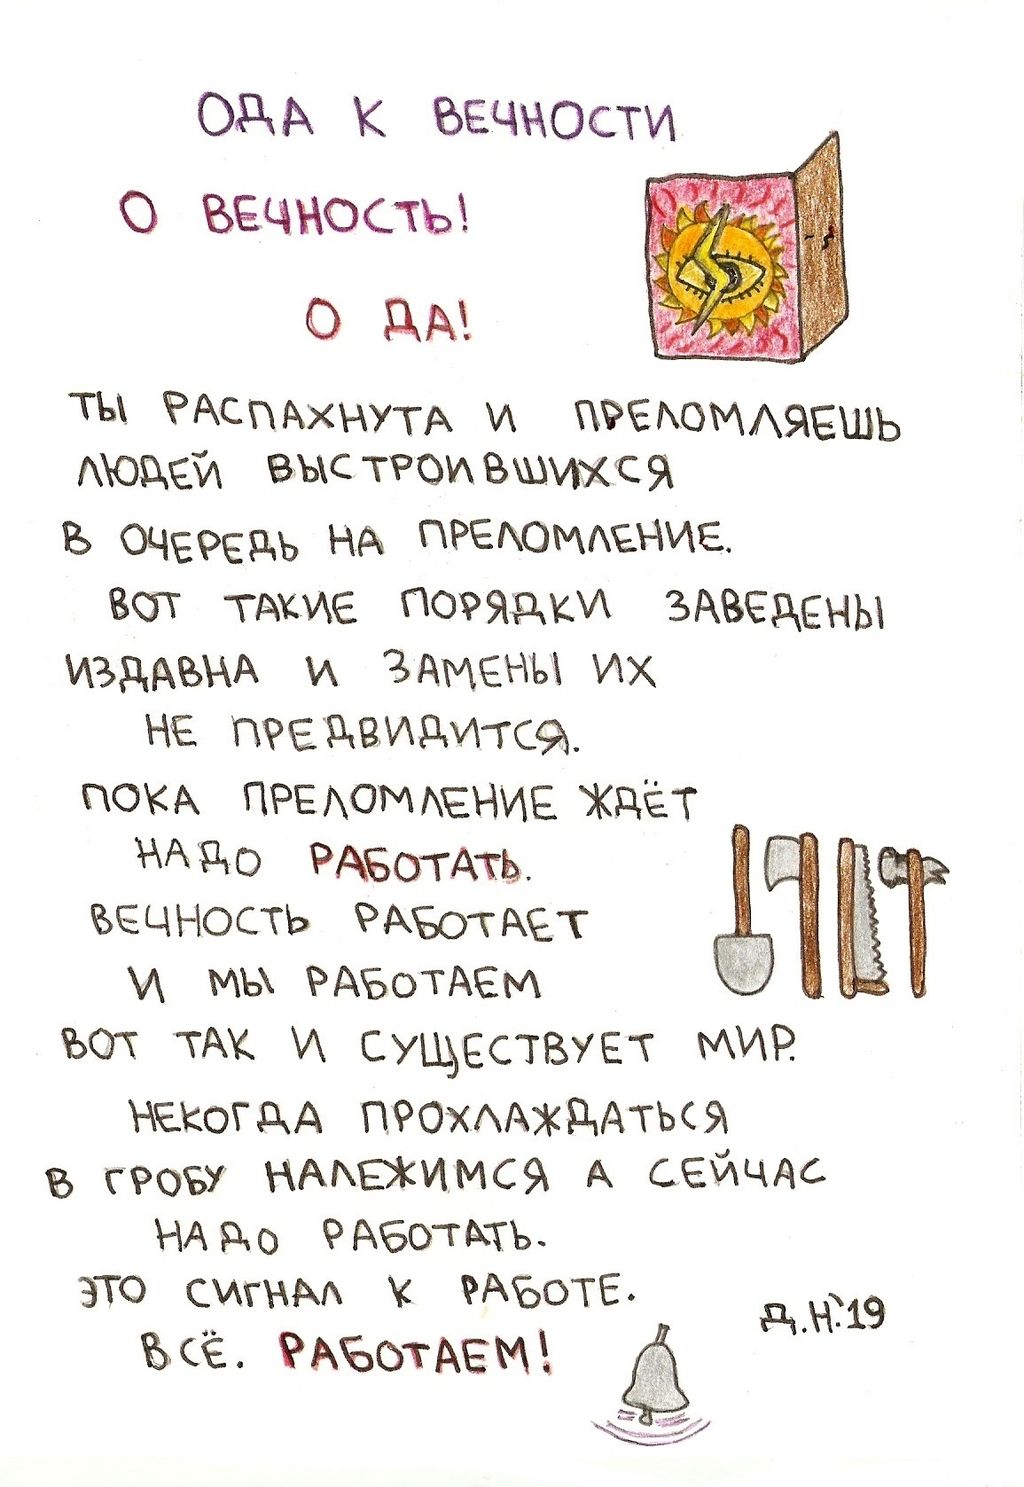 ОДА К ВЕЧНОСТИ
О ВЕЧНОСТЬ!
О ДА!
ТЫ РАСПАХНУТА И ПРЕЛОМЛЯЕШЬ
ЛЮДЕЙ ВЫСТРОИВШИХСЯ
В ОЧЕРЕДЬ НА ПРЕЛОМЛЕНИЕ.
ВОТ ТАКИЕ ПОРЯДКИ ЗАВЕДЕНЫ
ИЗДАВНА И ЗАМЕНЫ ИХ
НЕ ПРЕДВИДИТСЯ.
ПОКА ПРЕЛОМЛЕНИЕ ЖДЁТ
НАДО РАБОТАТЬ.
ВЕЧНОСТЬ РАБОТАЕТ
И МЫ РАБОТАЕМ
ВОТ ТАК И СУЩЕСТВУЕТ МИР.
НЕКОГДА ПРОХЛАЖДАТЬСЯ
В ГРОБУ НАЛЕЖИМСЯ А СЕЙЧАС
НАДО РАБОТАТЬ.
ЭТО СИГНАЛ К РАБОТЕ.
Д.Н.'19
ВСЁ. РАБОТАЕМ!